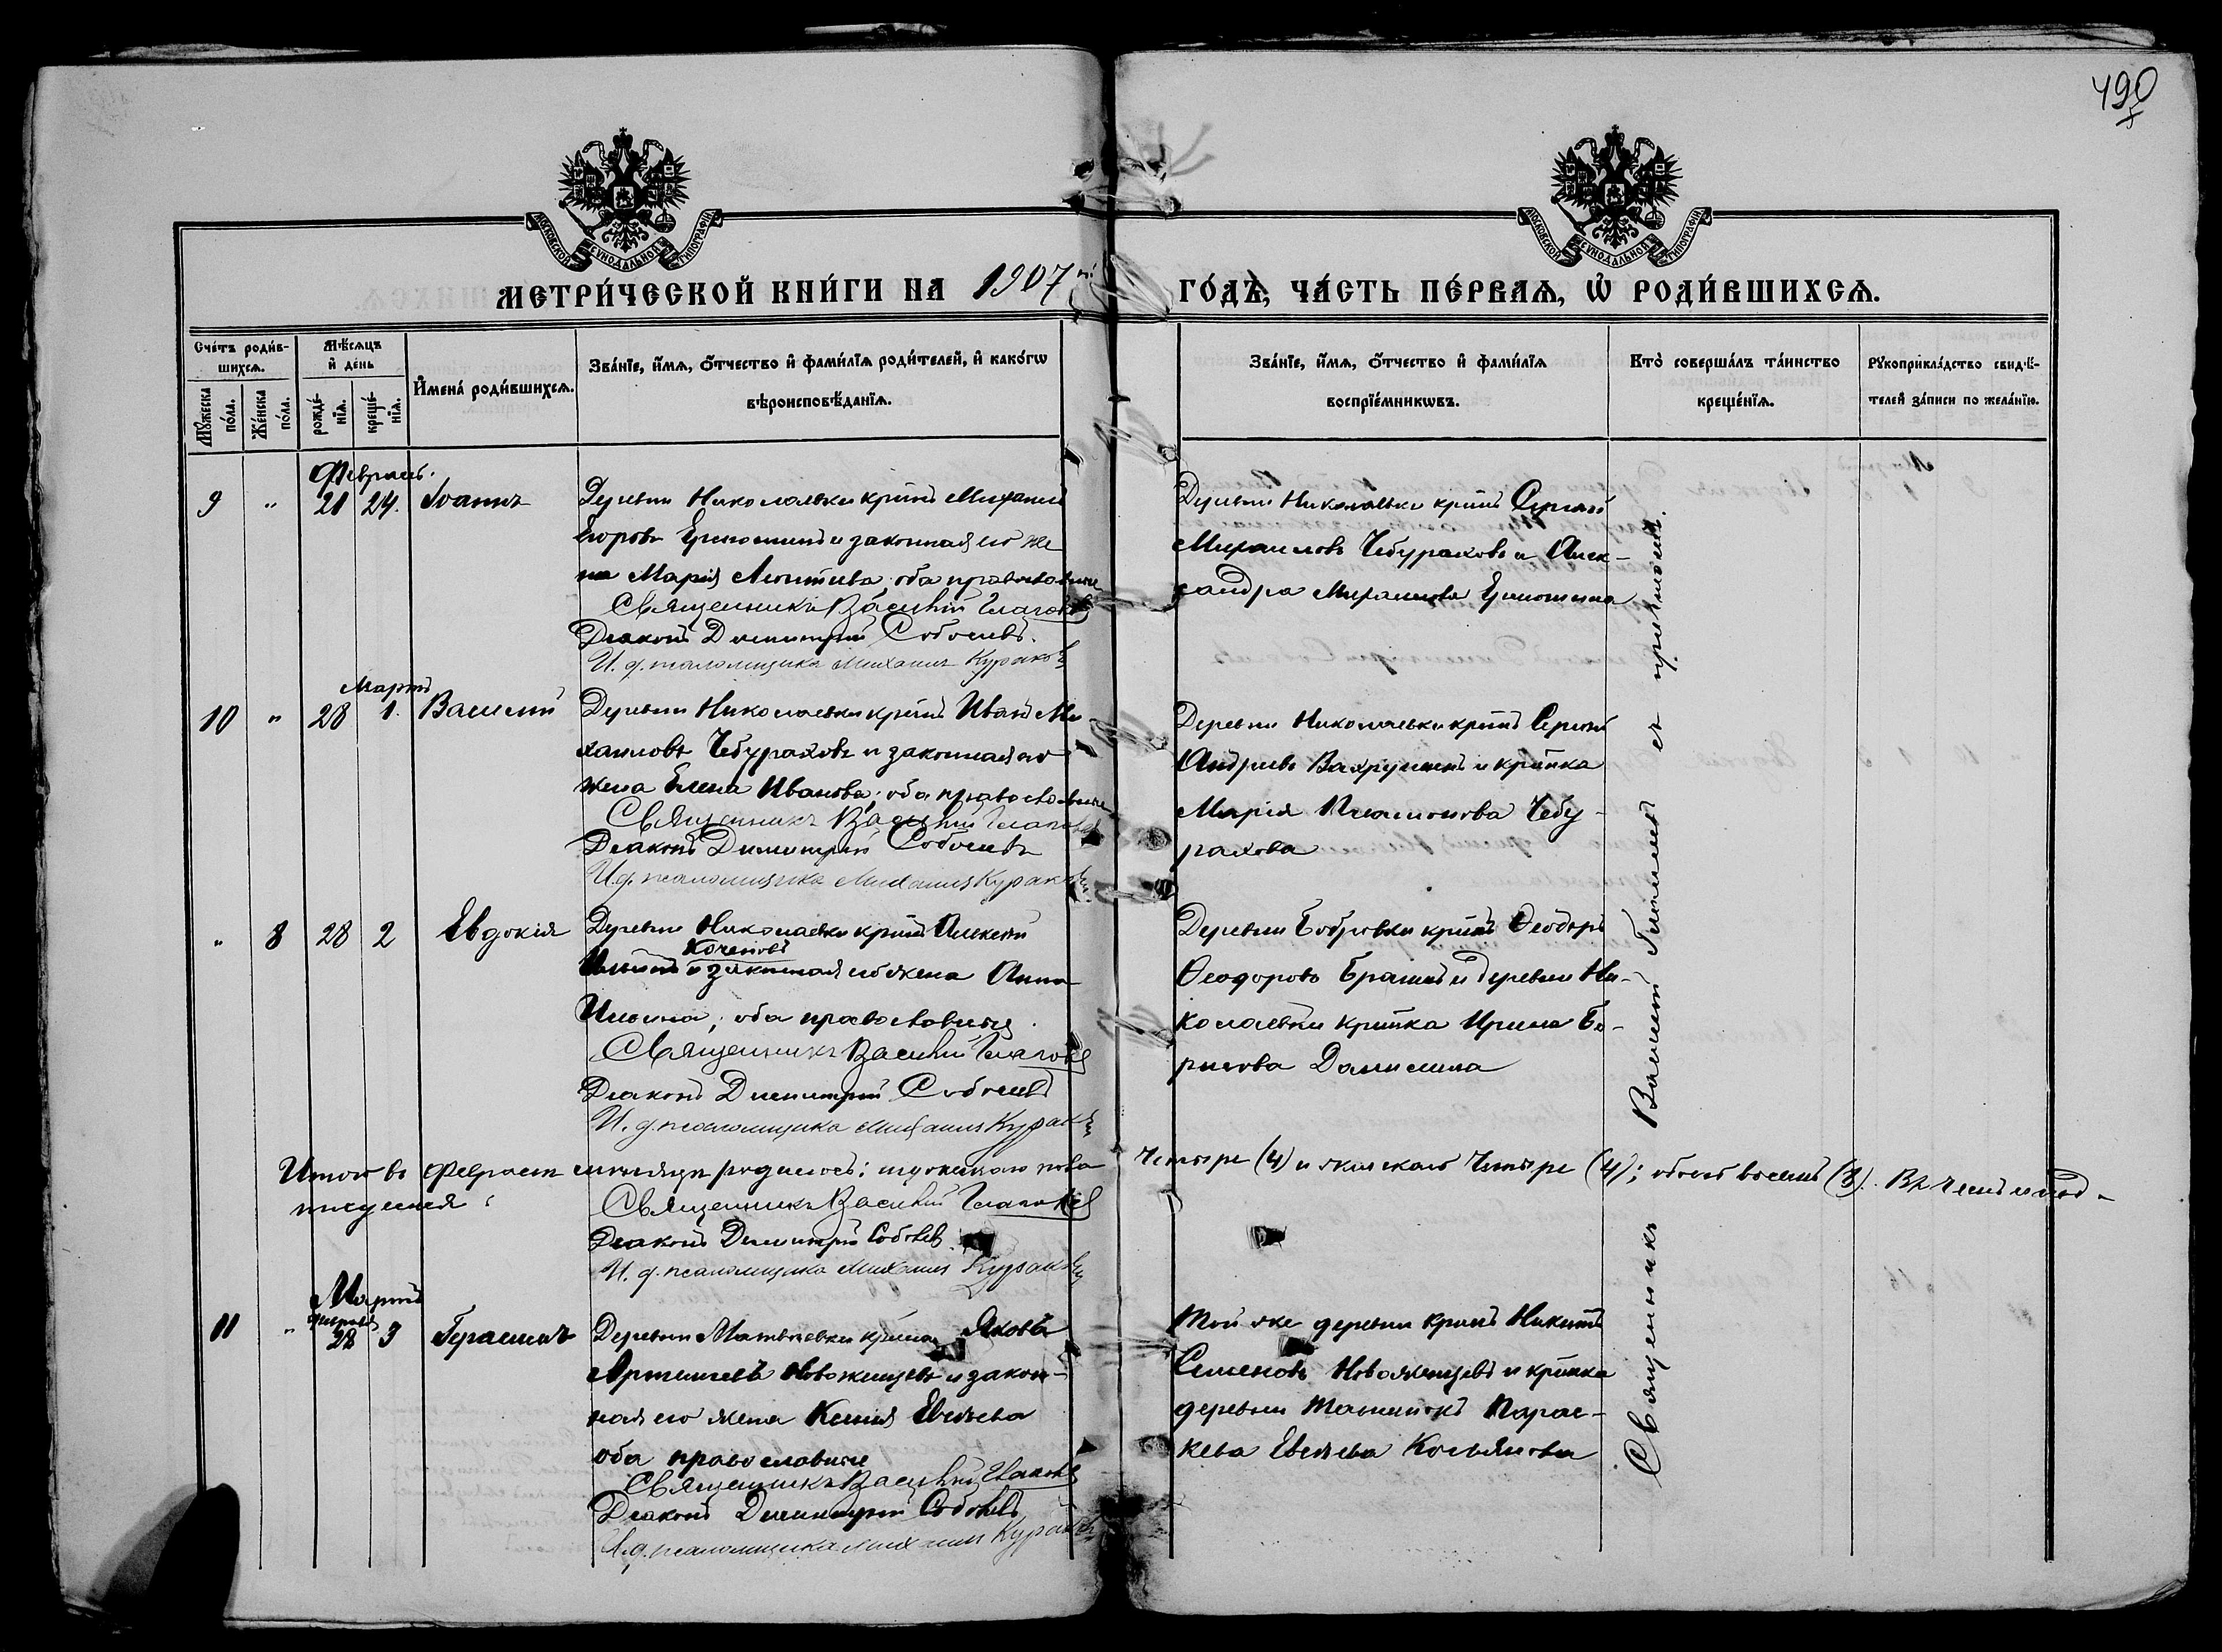 490
МОСКОВСКОЙ СУНОДАЛЬНОЙ ТИПОГРАФІИ
МОСКОВСКОЙ СУНОДАЛЬНОЙ ТИПОГРАФІИ
МЕТРИ́ЧЕСКОЙ КНИ́ГИ НА 1907
ГО́ДЪ, ЧА́СТЬ ПЕ́РВАѦ, Ѡ РОДИ́ВШИХСѦ.
Сче́тъ роди́в-
шихсѧ.
Мꙋжеска по́ла.
Же́нска по́ла.
Мѣ́сѧцъ и де́нь
рожде́-нїѧ.
креще́-нїѧ.
Имена́ роди́вшихсѧ.
Зва́нїе, и́мѧ, о́тчество и фами́лїѧ роди́телей, и како́гѡ
вѣроисповѣ́данїѧ.
Зва́нїе, и́мѧ, о́тчество и фами́лїѧ
воспрїе́мникѡвъ.
Кто̀ соверша́лъ та́инство
креще́нїѧ.
Рꙋкоприкла́дство свидѣ́-
телей за́писи по жела́нїю.
Февраль.
9 " 21 24. Іоаннъ
Деревни Николаевки кр-нъ Михаилъ
Егоровъ и законная его же
на Марія Леонтиева оба православные
Священникъ Василій
Діаконъ Димитрій Соболевъ.
И. д. псаломщика Михаилъ Кураковъ
Деревни Николаевки кр-нъ Сергѣй
Михаиловъ Чебураховъ и Алек-
сандра Михаилова
Мартъ
10 " 28 1. Василій
Деревни Николаевки кр-нъ Иванъ Ми
хаиловъ Чебураховъ и законная его
жена Елена Иванова; оба православные
Священникъ Василій
Діаконъ Димитрій Соболевъ
И. д. псаломщика Михаилъ Кураковъ
Деревни Николаевки кр-нъ Сергѣй
Андреевъ Вахрушинъ и кр-нка
Марія Чебу-
рахова
" 8 28 2 Евдокія
Деревни Николаевки кр-нъ Алексѣй
Коченовъ
Ильинъ и законная его жена Анна
Ильина; оба православные
Священникъ Василій
Діаконъ Димитрій Соболевъ
И. д. псаломщика Михаилъ Кураковъ
Деревни Бобровки кр-нъ Ѳеодоръ
Ѳеодоровъ и деревни Ни-
колаевки кр-нка Ирина Бо-
рисова
Итого въ Февралѣ мѣсяцѣ родилось: мужескаго пола четыре (4) и женскаго четыре (4); обоего восемь (8).
Священникъ Василій
Діаконъ Димитрій Соболевъ
И. д. псаломщика Михаилъ Кураковъ
Мартъ
февраль
11 " 28 3 Герасимъ
Деревни Матвѣевки кр-нъ Яковъ
Артемьевъ Новоженцевъ и закон-
ная его жена Ксенія Евсѣева
оба православные
Священникъ Василій
Діаконъ Димитрій Соболевъ
И. д. псаломщика Михаилъ Кураковъ
Той же деревни кр-нъ Никита
Семеновъ Новоженцевъ и кр-нка
деревни Парас-
кева Евсѣева
Священникъ Василій съ причтомъ.